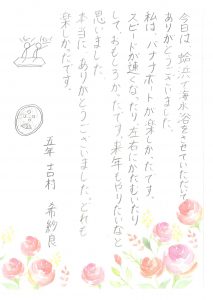 今日は 蛤浜で海水浴をさせていただいて
ありがとうございました。
私は、バナナボートが楽しかったです。
スピードが速くなったり、左右にかたむいたり
して、おもしろかったです。来年もやりたいなと
思いました。
本当に ありがとうございました。とれも
楽しかったです。
五年 吉村 希紗良